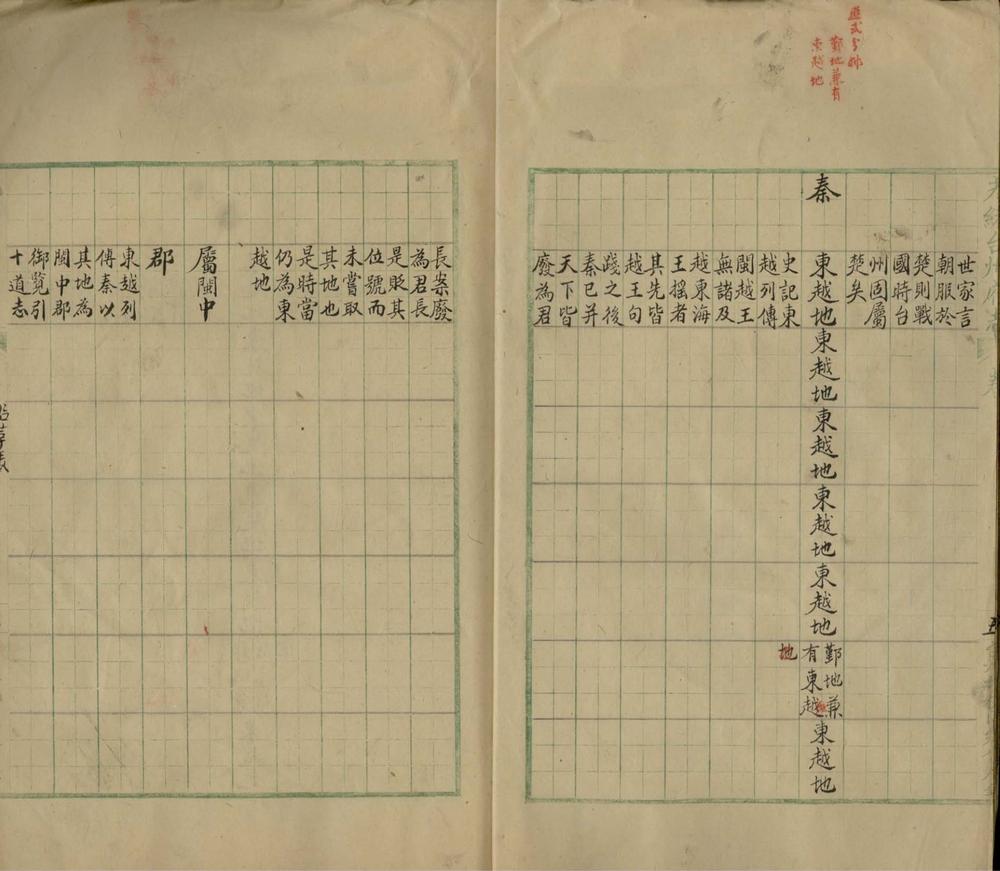 世家言
朝服於
楚則戰
國時台
州固屬
楚矣
秦
東越地
東越地
東越地
東越地
東越地
鄞地兼
有東越
地
東越地
史記東
越列傳
閩越王
無諸及
越東海
王揺者
其先皆
越王句
踐之後
秦已并
天下皆
廢為君
長案廢
為君長
是貶其
位號而
未嘗取
其地也
是時當
仍為東
越地
屬閩中
郡
東越列
傳秦以
其地為
閩中郡
御覽引
十道志
鄞地兼有
東越地